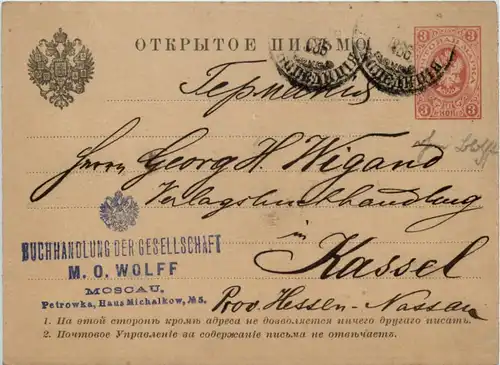 ОТКРЫТОЕ ПИСЬМО.
Германия
Herrn Georg H. Wigand
Verlagsbuchhandlung
in
Kassel
Prov. Hessen-Nassau
BUCHHANDLUNG DER GESELLSCHAFT
M. O. WOLFF
MOSCAU,
Petrowka, Haus Michalkow, №5.
1. На этой сторонѣ кромѣ адреса не дозволяется ничего другаго писать.
2. Почтовое Управленіе за содержаніе письма не отвѣчаетъ.
3 3
3 3